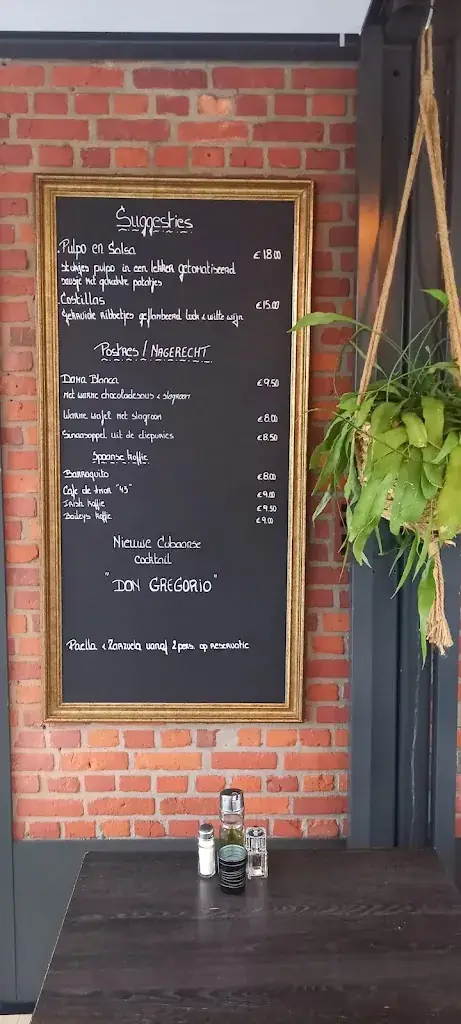 Suggesties
Pulpo en Salsa € 18.00
stukjes pulpo in een lekker getomatiseerd
sausje met gekookte patatjes
Costillas €15.00
Gekruide ribbetjes geflambeerd look & witte wijn
Postres / NAGERECHT
Dama Blanca €9.50
Met warme chocoladesaus & slagroom
Warme wafel met slagroom €8.00
Sinaasappel uit de diepvries €8.50
Spaanse koffie
Barraquito €8.00
Cafe de tran "43" €9.00
Irish koffie €9.50
Baileys koffie €9.00
Nieuwe Cubaanse
cocktail
"DON GREGORIO"
Paella & Zarzuela vanaf 2 pers. op reservatie